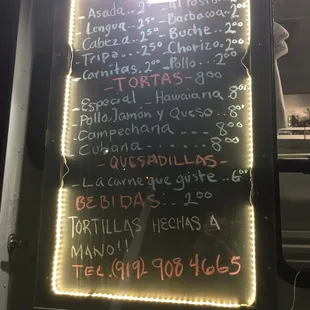 Asada
Lengua .. 2.50 Barbacoa 2.00
Cabeza .. 2.50 Buche .. 2.00
Tripa ... 2.50 Chorizo .. 2.00
Carnitas. 2.00 Pollo .. 2.00
TORTAS- 8.00
-Especial - Hawaiana 8.00
-Pollo, Jamón y Queso .. 8.00
-Campechana - - - . 8.00
-Cubana - - - - . . 8.00
-QUESADILLAS-
-La carne que güste.. 6.00
BEBIDAS.. 2.00
TORTILLAS HECHAS A
MANO!!
TEL.(919)-908 4665